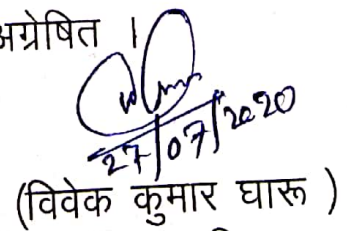 अग्रेषित ।
27/07/2020
(विवेक कुमार घारू )